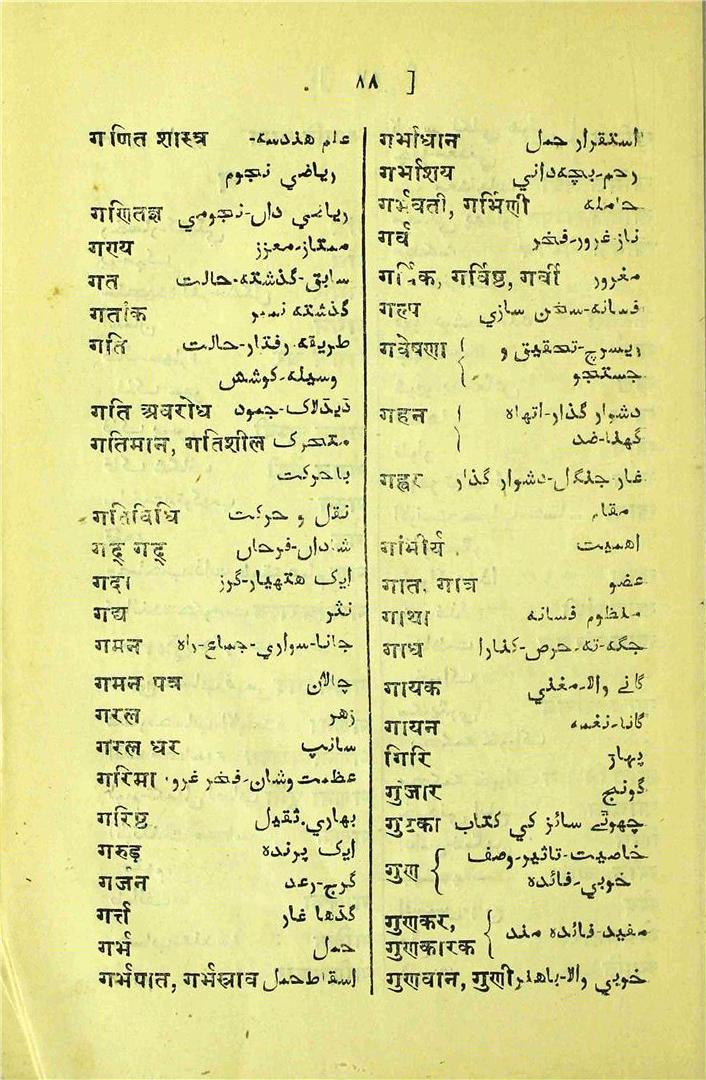 ۸۸ ]
गणित शास्त्र علم هندسه-
رياضي نجوم
गणितज्ञ رياضي داں-نجومي
गण्य ممتاز-معزز
गत سابق-گذشته-حالت
गतांक گذشته نمبر
गति طريقه-رفتار-حالت
وسيله-کوشش
गति अवरोध ڈيڈلاک-جمود
गतिमान, गतिशील متحرک
باحرکت
गतिविधि نقل و حرکت
गद् गद् شاداں-فرحاں
गदा ايک هتهيار-گرز
गद्य نثر
गमन جانا-سواري-جماع-راه
गमन पत्र چالان
गरल زهر
गरल धर سانپ
गरिमा عظمت وشان-فخر غرور
गरिष्ठ بهاري-ثقيل
गरुड़ ايک پرنده
गर्जन گرج-رعد
गर्त्त گڈها غار
गर्भ حمل
गर्भपात, गर्भस्राव اسقاط حمل
गर्भाधान استقرار حمل
गर्भाशय رحم-بچه داني
गर्भवती, गर्भिणी حامله
गर्व ناز-غرور-فخر
गर्विक, गर्विष्ठ, गर्वी مغرور
गल्प فسانه-سخن سازي
गवेषणा { ريسرچ-تحقيق و
جستجو
गहन { دشوار گذار-اتهاه
گهنا-ضد
गह्वर غار-جنگل-دشوار گذار
مقام
गांभीर्य اهميت
गात, गात्र عضو
गाथा منظوم فسانه
गाध جگه-ته-حرص-کنارا
गायक گانے والا-مغني
गायन گانا-نغمه
गिरि پهاڑ
गुंजार گونج
गुटका چهوٹے سائز کي کتاب
गुण { خاصيت-تاثير-وصف
خوبي-فائده
गुणकर,
गुणकारक { مفيد-فائده مند
गुणवान, गुणी خوبي والا-باهنر